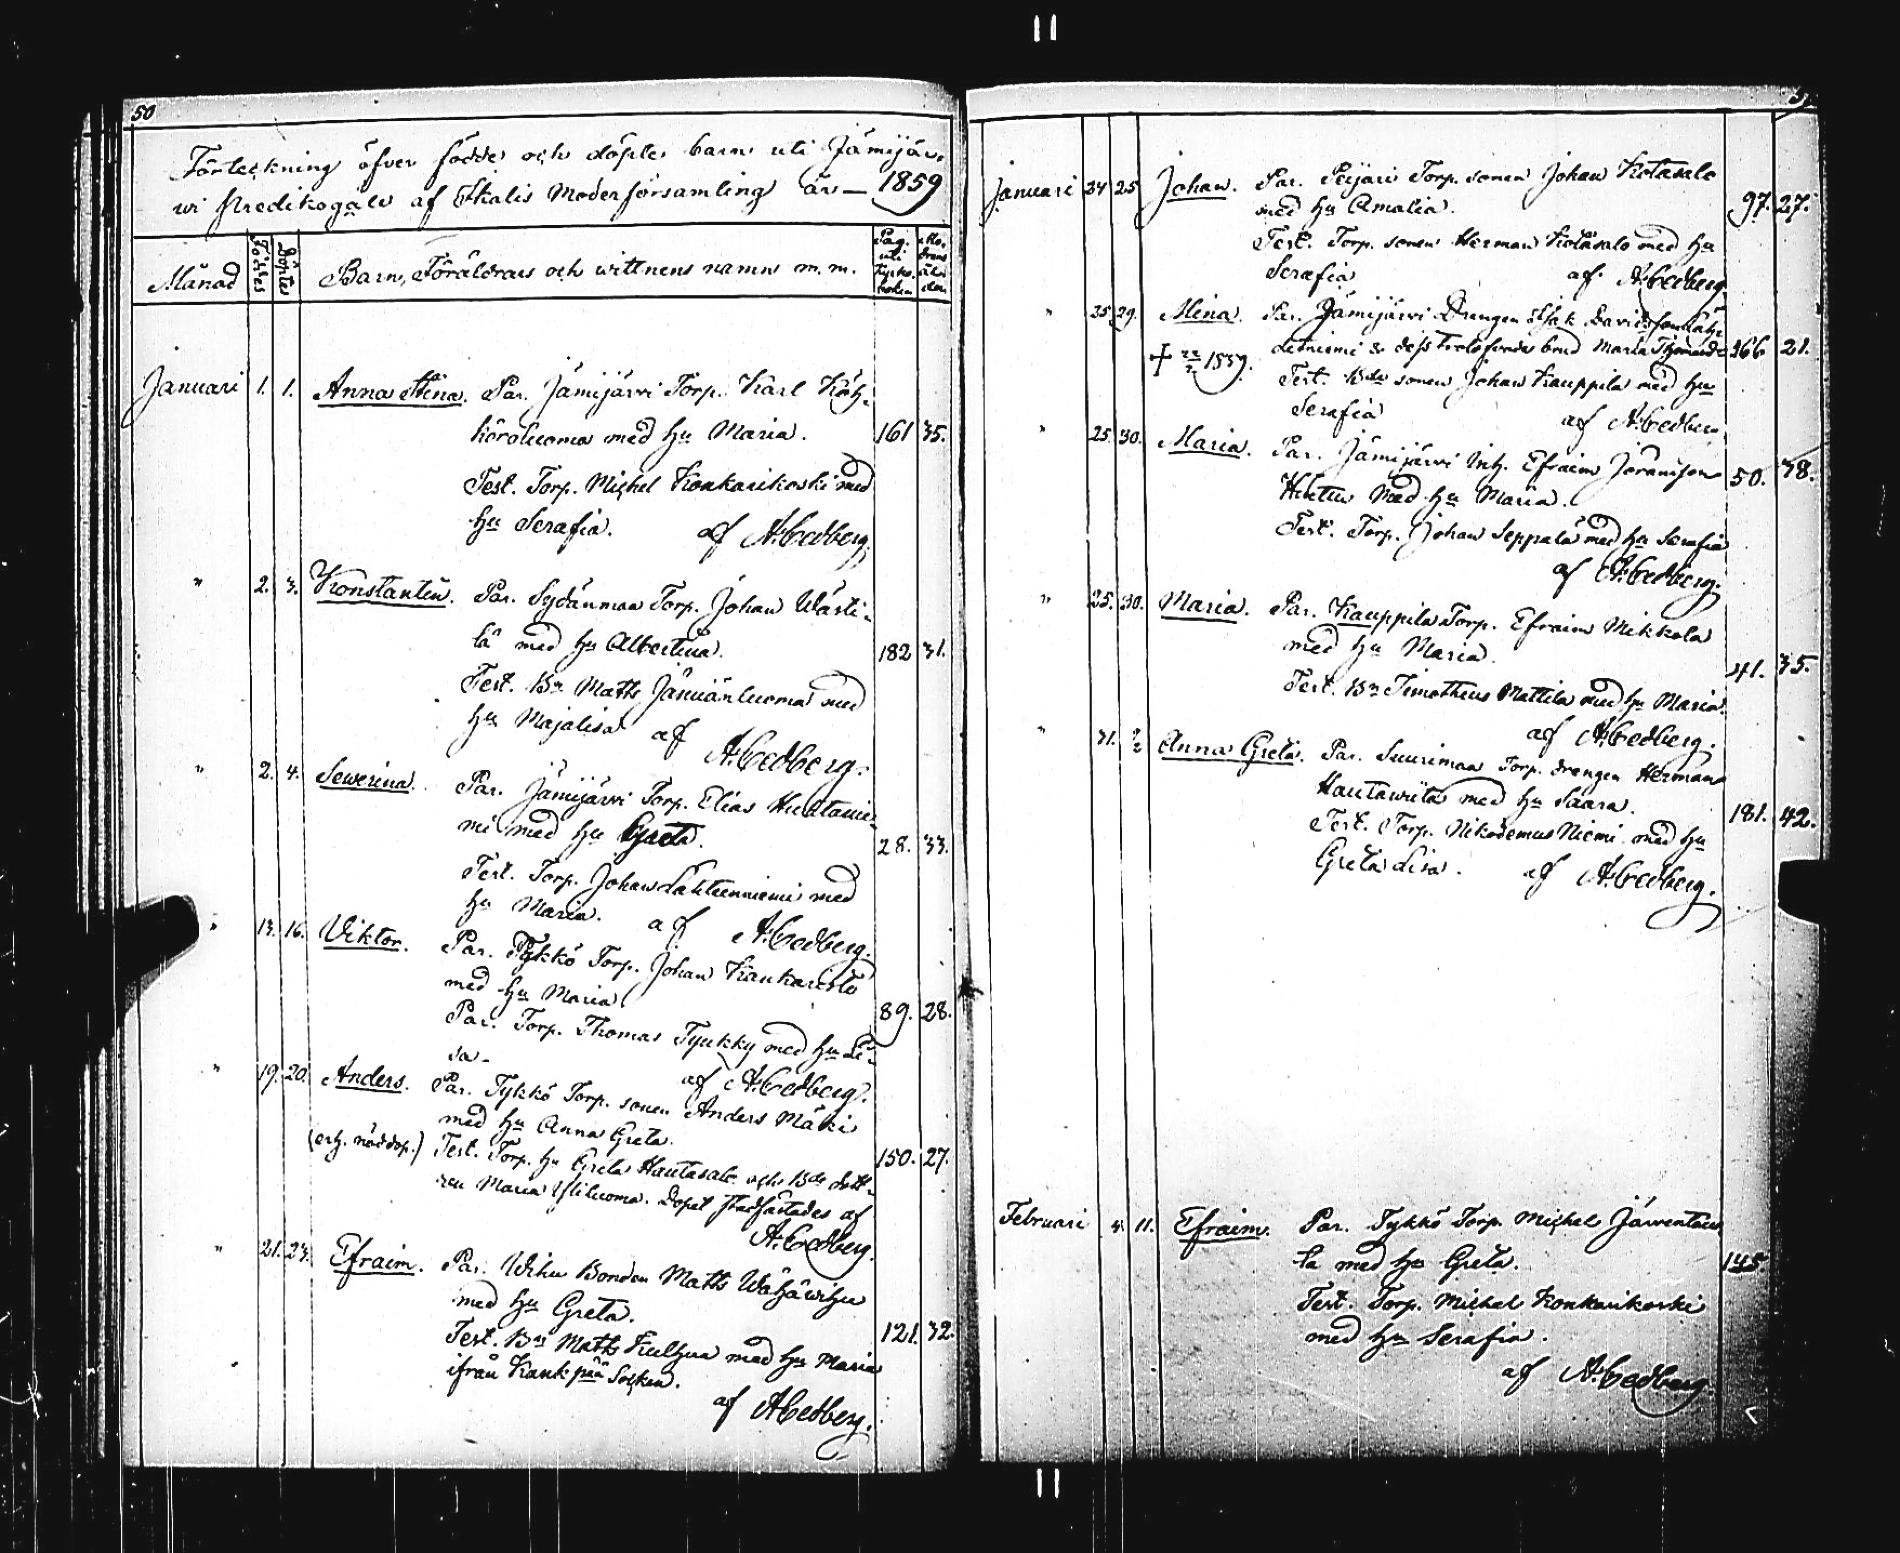 50
Förteckning öfver födde och döpte barn uti Jämijär-
wi Predikogäld af Ikalis Moderförsamling år 1859
Månad Föddes Döptes Barn, Föräldrars och wittnens namn m.m. Pag. uti Kyrko- boken Mo- drens ålder
Januari 1. 1. Anna Stina. Par. Jämijärvi Torp. Karl Käh-
köroluoma med hu Maria. 161 35.
Test. Torp. Michel Konkarikoski med
hu Serafia. af A. Cedberg.
" 2. 3. Konstantin. Par. Sydänmaa Torp. Johan Wästi-
lä med hu Albertina. 182 31.
Test. Bn Matts Jämiänluoma med
hu Majalisa af A. Cedberg.
" 2. 4. Sewerina. Par. Jämijärvi Torp. Elias
mi med hu Greta. 28. 33.
Test. Torp. Johan Lahteenniemi med
hu Maria. af A. Cedberg.
" 13. 16. Viktor. Par. Tykkö Torp. Johan Kankaristo
med hu Maria 89. 28.
Par. Torp. Thomas Tyukky med hu Li-
sa. af A. Cedberg.
" 19. 20. Anders. Par. Tykkö Torp. sonen Anders Mäki
med hu Anna Greta.
(erh. nöddop.) Test. Torp. hu Greta Hautasalo och Bde dott- 150. 27.
ren Maria Yliluoma. Dopet stadfästades af
A. Cedberg.
" 21. 23. Efraim. Par. Wihu Bonden Matts Wähäwihu
med hu Greta. 121. 32.
Test. Bn Matts Kulhua med hu Maria
ifrån Kankpää Socken.
af A Cedberg.
Januari 24 25 Johan. Par. Peijari Torp. sonen Johan Kotasalo
med hu Amalia. 97. 27.
Test. Torp. sonen Herman Kotasalo med hu
Serafia af A. Cedberg.
" 25. 29. Mina. Par. Jämijärvi Drengen Isak Davidsson
+ 22/2 1859. & dess trolofvade brud Maria 166 21.
Test. Bde sonen Johan Kauppila med hu
Serafia af A. Cedberg
" 25. 30. Maria. Par. Jämijärvi Inh. Efraim Göransson
med hu Maria. 50. 38.
Test. Torp. Johan Seppälä med hu Serafia
af A. Cedberg.
" 25. 30. Maria. Par. Kauppila Torp. Efraim Mikkola
med hu Maria. 41. 35.
Test. Bn Timotheus Mattila med hu Maria.
af A. Cedberg.
" 31. 2/2 Anna Greta. Par. Suurimaa Torp. drengen Herman
Hautawiita med hu Saara. 181. 42.
Test. Torp. Nikodemus Niemi med hu
Greta Lisa. af A. Cedberg.
Februari 11. Efraim. Par. Tykkö Torp. Michel Järventau-
la med hu Greta. 145
Test. Torp. Michel Konkarikoski
med hu Serafia.
af A. Cedberg.